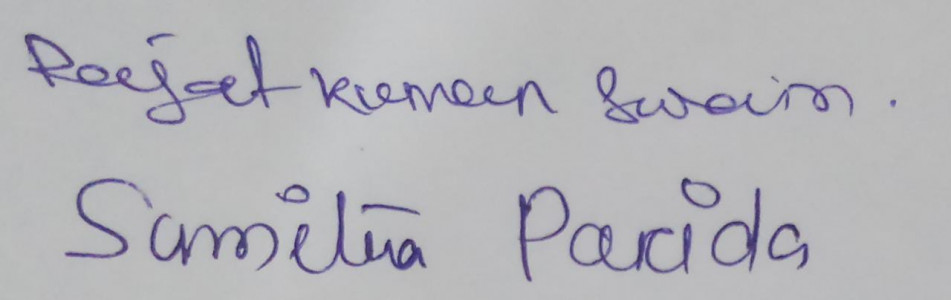 Rajat Kumar Swain.
Sumitra Parida